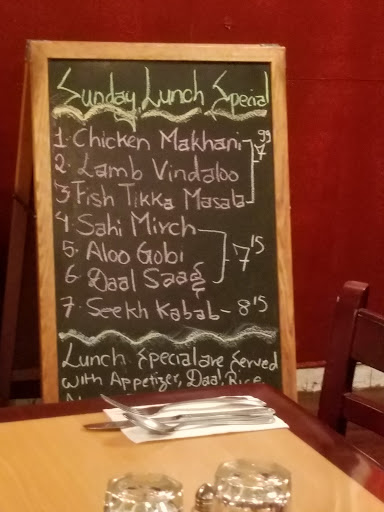 Sunday Lunch Special
1. Chicken Makhani
2. Lamb Vindaloo
3. Fish Tikka Masala
7.99
4. Sahi Mirch
5. Aloo Gobi
6. Daal Saag
7.15
7. Seekh Kabab - 8.15
Lunch Special are Served
with Appetizer, Daal, Rice